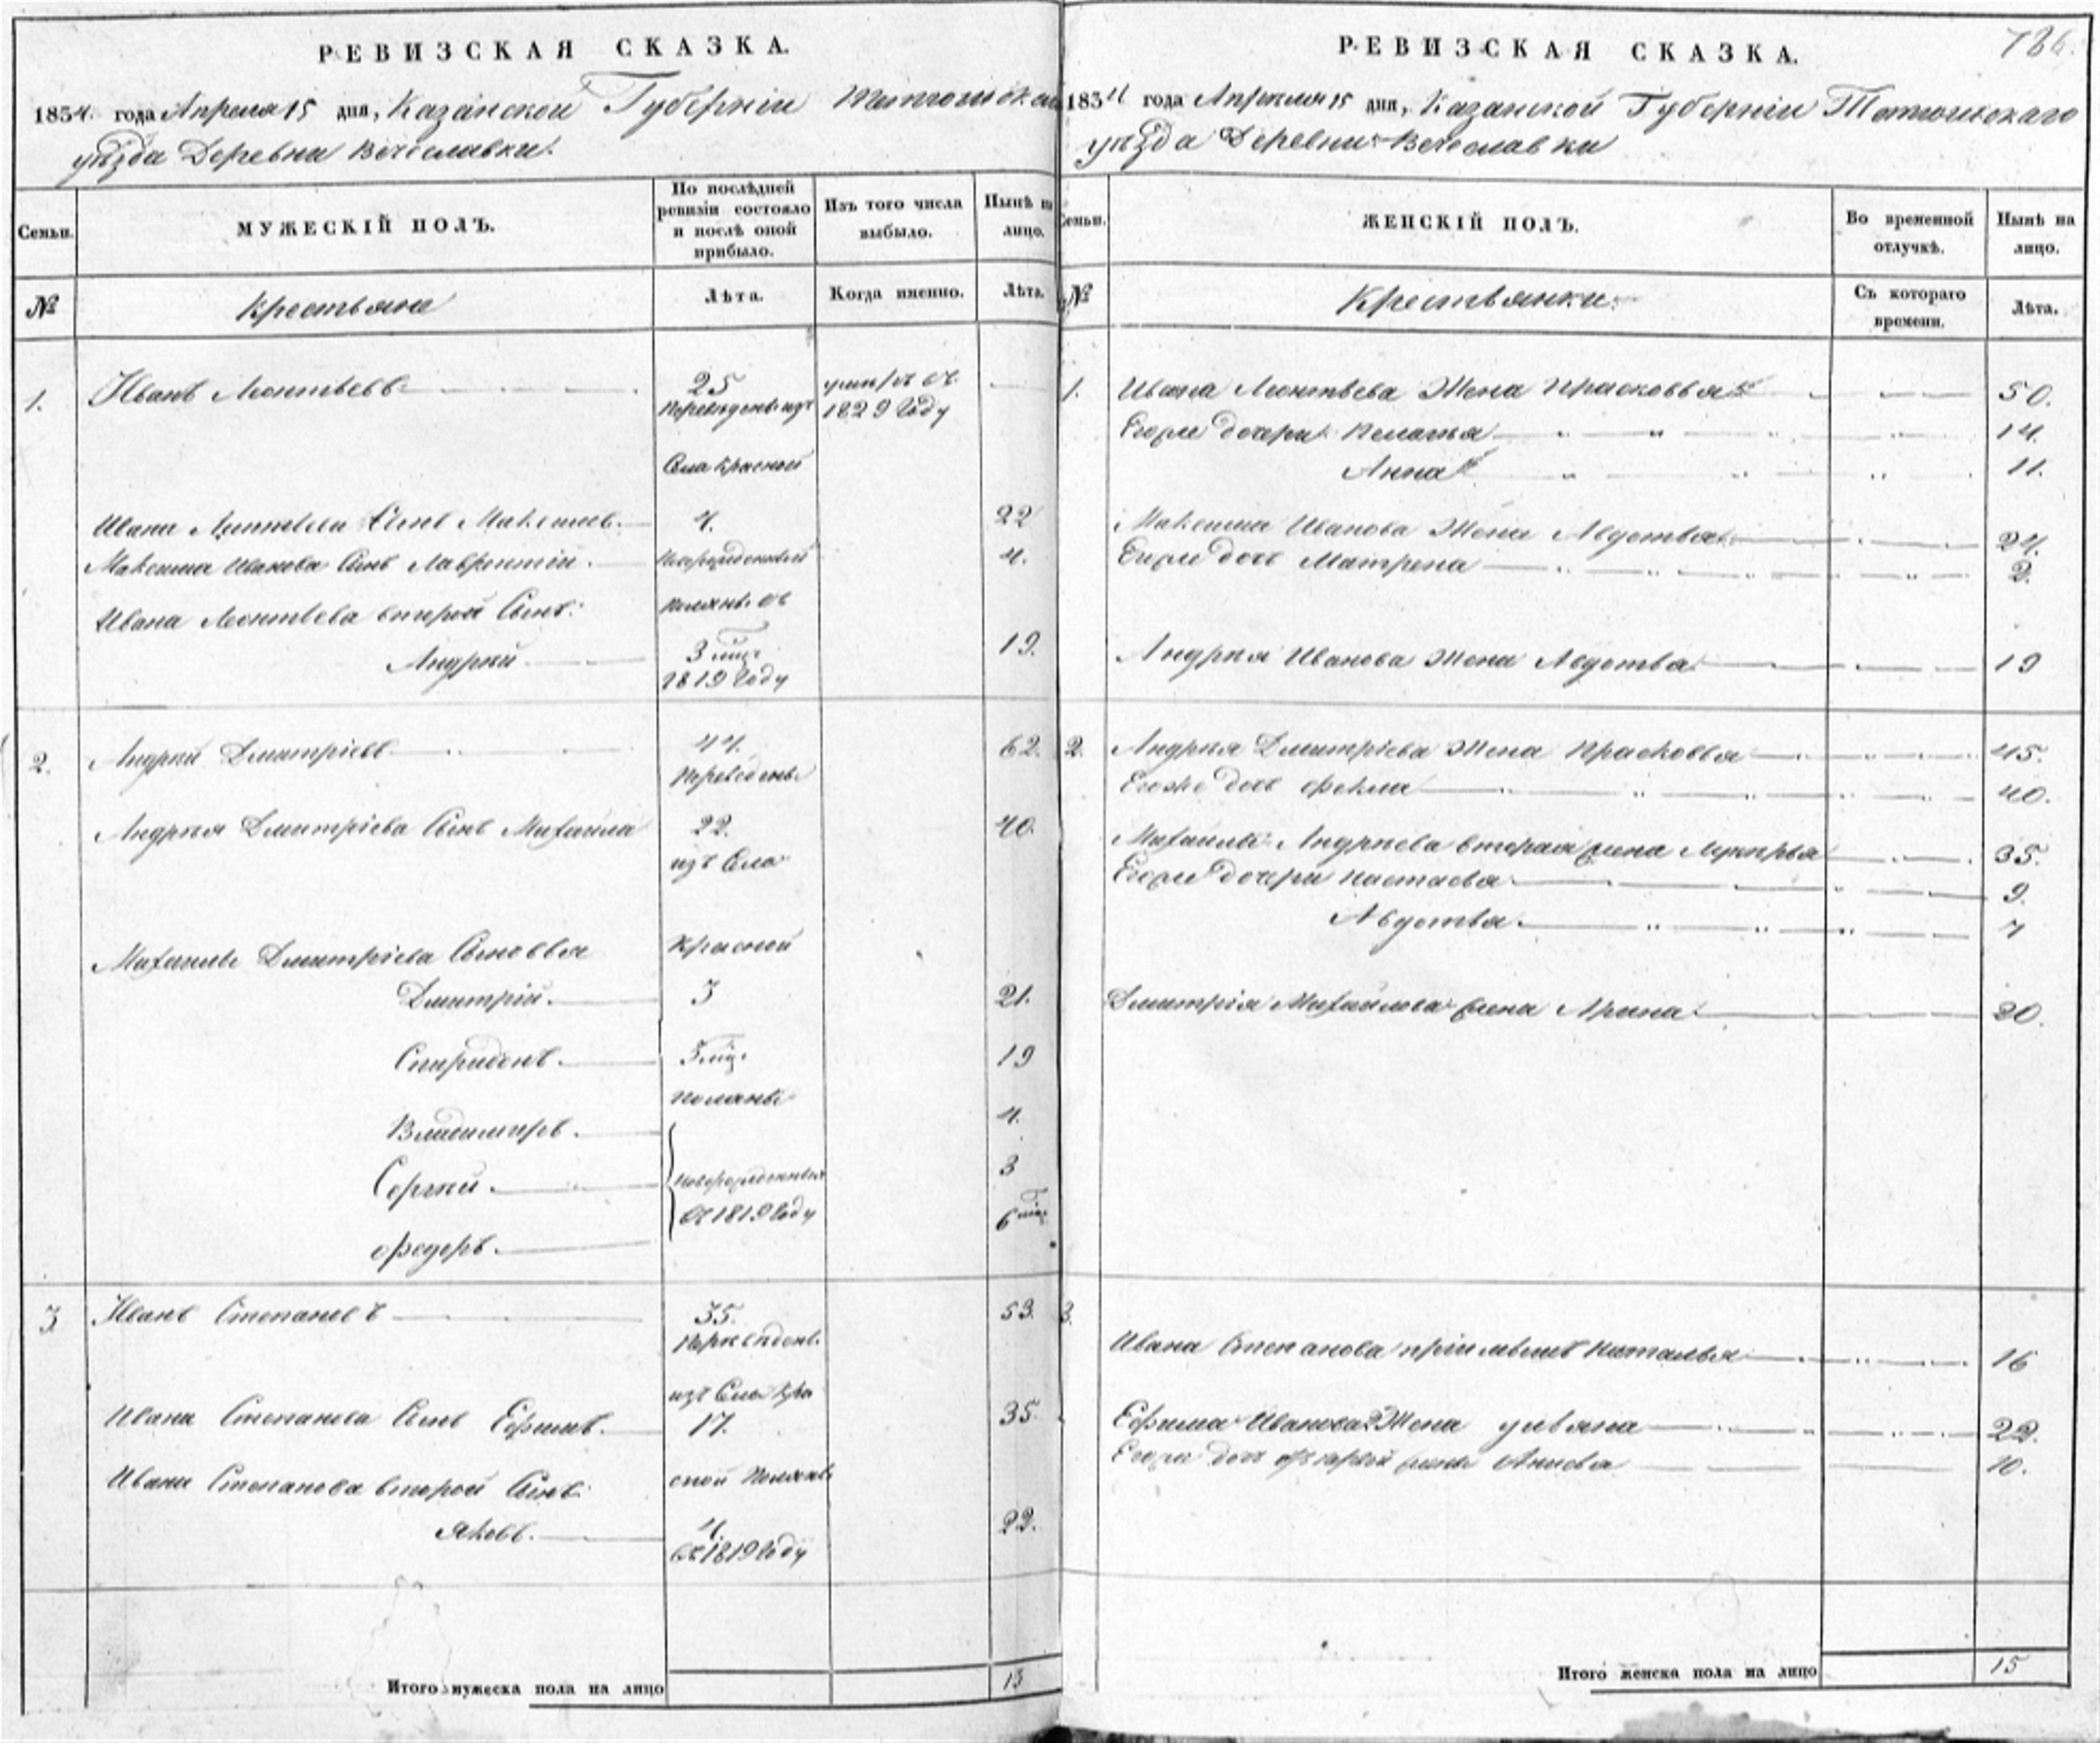 РЕВИЗСКАЯ СКАЗКА.
1834. года Апреля 15 дня, Казанской Губерніи
уѣзда Деревни Вечеславки.
Семьи.
МУЖЕСКІЙ ПОЛЪ.
По послѣдней ревизіи состояло и послѣ оной прибыло.
Изъ того числа выбыло.
Нынѣ на лицо.
№
Крестьяне
Лѣта.
Когда именно.
Лѣта.
1.
Иванъ Леонтьевъ
25
1829 году
Переведенъ изъ
Села Красной
Ивана Леонтьева Сынъ Максимъ.
4.
22
Максима Иванова Сынъ Лаврентій.
Новорожденный
4.
Ивана Леонтьева второй Сынъ:
Полянъ въ
Андрей
3 мц.
19.
1819 году
2.
Андрей Дмитріевъ
44.
62.
Переведенъ
Андрея Дмитріева Сынъ Михайла
22.
40.
изъ Села
Красной
Михайлы Дмитріева Сыновья
Дмитрій.
3
21.
Спиридонъ.
3 мц.
19
Полянъ
Владимиръ.
4.
Сергей.
Новорожденные
3
въ 1819 году
6 мц.
Федеръ.
3
Иванъ Степановъ
35.
53.
Переведенъ
изъ Села Кра
Ивана Степанова Сынъ Ефимъ.
17.
35.
сной Полянъ
Ивана Степанова второй Сынъ:
Яковъ.
4.
22.
въ 1819 году
Итого мужеска пола на лицо
13
РЕВИЗСКАЯ СКАЗКА.
786.
1834 года Апреля 15 дня, Казанской Губерніи Тетюшскаго
уѣзда Деревни Вечеславки
Семьи.
ЖЕНСКІЙ ПОЛЪ.
Во временной отлучкѣ.
Нынѣ на лицо.
№
Крестьянки.
Съ котораго времени.
Лѣта.
1.
Ивана Леонтьева Жена Прасковья
50.
Егоже дочери Пелагья
14.
Анна
11.
Максима Иванова Жена Авдотья
24.
Егоже дочь Матрена
2.
Андрея Иванова Жена Авдотья
19
2.
Андрея Дмитріева Жена Прасковья
45.
Егоже дочь Фекла
40.
Михайлы Андреева вторая жена Лукерья
35.
Егоже дочери Настасья
9.
Авдотья.
7
Дмитрія Михайлова жена Арина
20.
3.
Ивана Степанова Наталья
16
Ефима Иванова 2 Жена Ульяна
22.
Егоже дочь от первой жены Анисья
10.
Итого женска пола на лицо
15